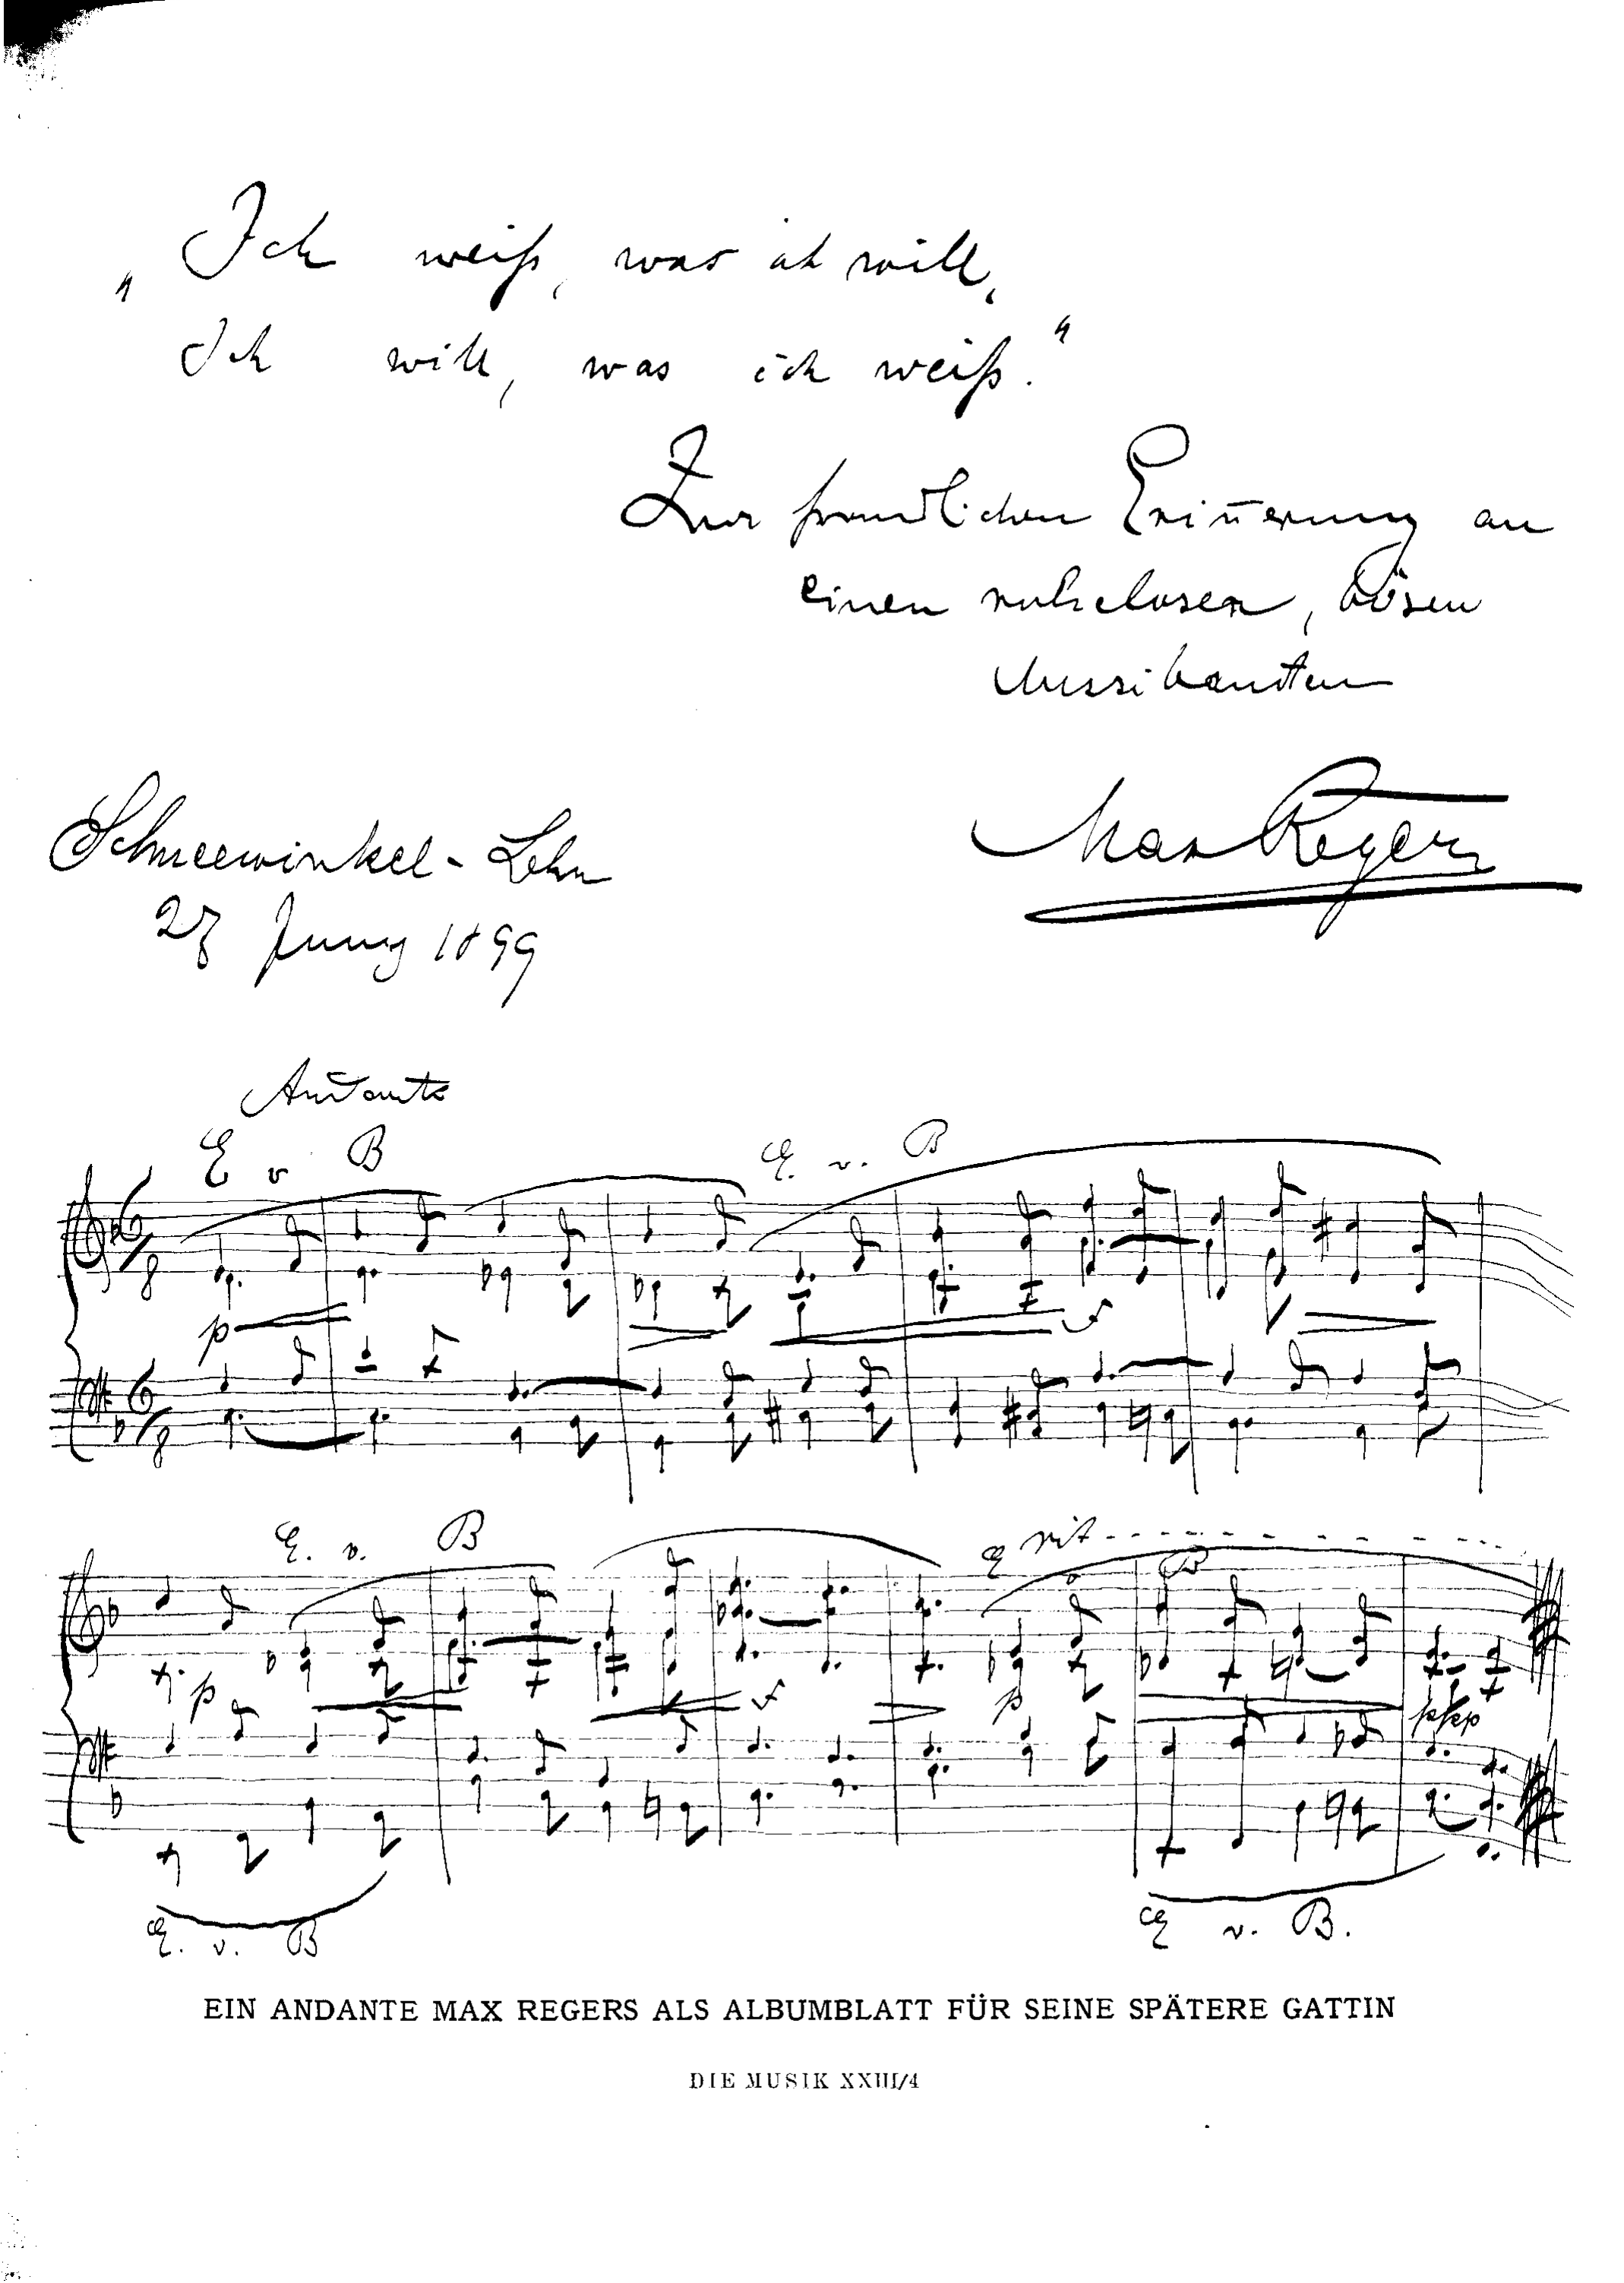 „Ich weiß, was ich will,
Ich will, was ich weiß."
Zur freundlichen Erin̅erung an
einen ruhelosen, bösen
Musikanten
Max Reger
Schneewinkel-Lehn
Juny 1899
Andante
E v B
E. v. B
6/8
p
f
6/8
E. v. B
rit
E
v
B
p
f
p
ppp
E. v. B
E v. B.
EIN ANDANTE MAX REGERS ALS ALBUMBLATT FÜR SEINE SPÄTERE GATTIN
DIE MUSIK XXIII/4